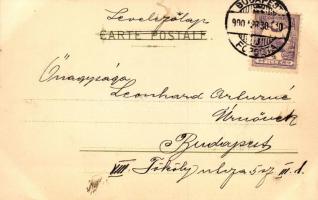 Levelezőlap
CARTE POSTALE
BUDAPEST
900
Önagysága
Leonhard Arturné
Úrnőnek
Budapest
VIII. Tököly utcza 57 II. 1.